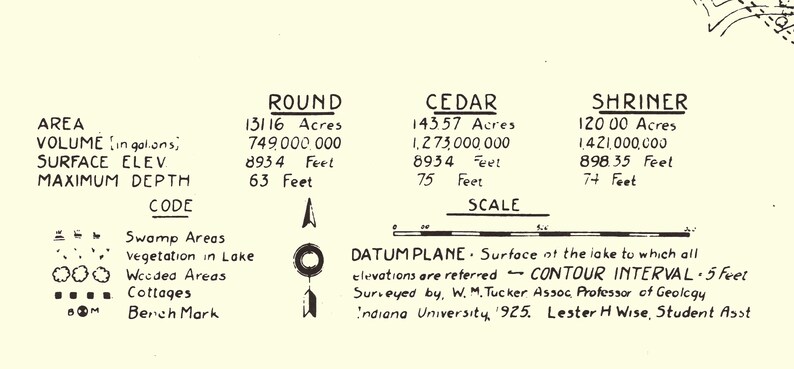 ROUND CEDAR SHRINER
AREA 131 16 Acres 143.57 Acres 120 00 Acres
VOLUME [in galions] 749,000,000 1,273,000,000 1,421,000,000
SURFACE ELEV. 893 4 Feet 893 4 Feet 898.35 Feet
MAXIMUM DEPTH 63 Feet 75 Feet 74 Feet
CODE SCALE
Swamp Areas
Vegetation in Lake DATUM PLANE - Surface of the lake to which all
Wooded Areas elevations are referred - CONTOUR INTERVAL - 5 Feet
Cottages Surveyed by, W. M. Tucker Assoc. Professor of Geology
B M Bench Mark Indiana University, 1925. Lester H Wise, Student Asst